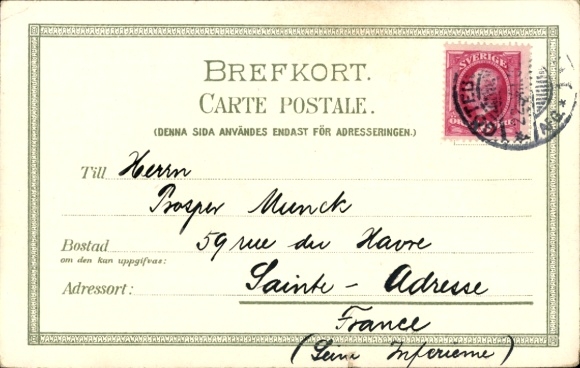 SVERIGE
BREFKORT.
CARTE POSTALE.
(DENNA SIDA ANVÄNDES ENDAST FÖR ADRESSERINGEN.)
Till Herrn
Prosper Munck
Bostad 59 rue du Havre
om den kan uppgifvas:
Adressort: Sainte - Adresse
France
(Seine Inferieure)